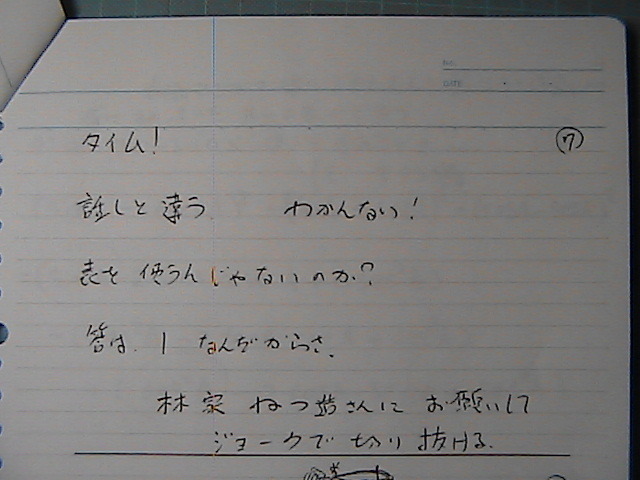 No.
DATE
タイム! ⑦
話しと違う わかんない!
表を使うんじゃないのか?
答は、1 なんだからさ。
林家 ねつ造さんに お願いして
ジョークで切り抜ける。